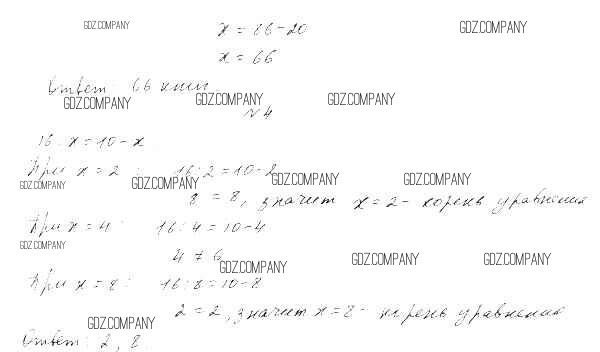 GDZ.COMPANY x = 86-20 GDZ.COMPANY
x = 66
Ответ: 66 книг.
GDZ.COMPANY GDZ.COMPANY GDZ.COMPANY
№4
16 : x = 10 - x.
При x = 2 : 16 : 2 = 10 - 2
GDZ.COMPANY GDZ.COMPANY GDZ.COMPANY GDZ.COMPANY
8 = 8, значит x = 2 - корень уравнения
При x = 4 : 16 : 4 = 10 - 4
GDZ.COMPANY
4 ≠ 6
GDZ.COMPANY GDZ.COMPANY GDZ.COMPANY
При x = 8 : 16 : 8 = 10 - 8
2 = 2, значит x = 8 - корень уравнения
GDZ.COMPANY
Ответ: 2, 8.